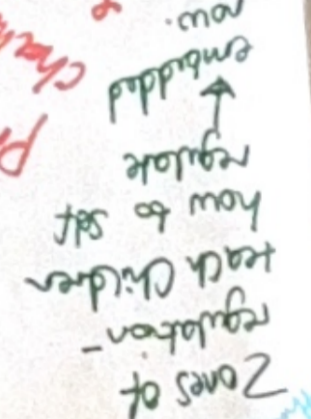 Zones of
regulation -
teach children
how to self
regulate
embedded
now.